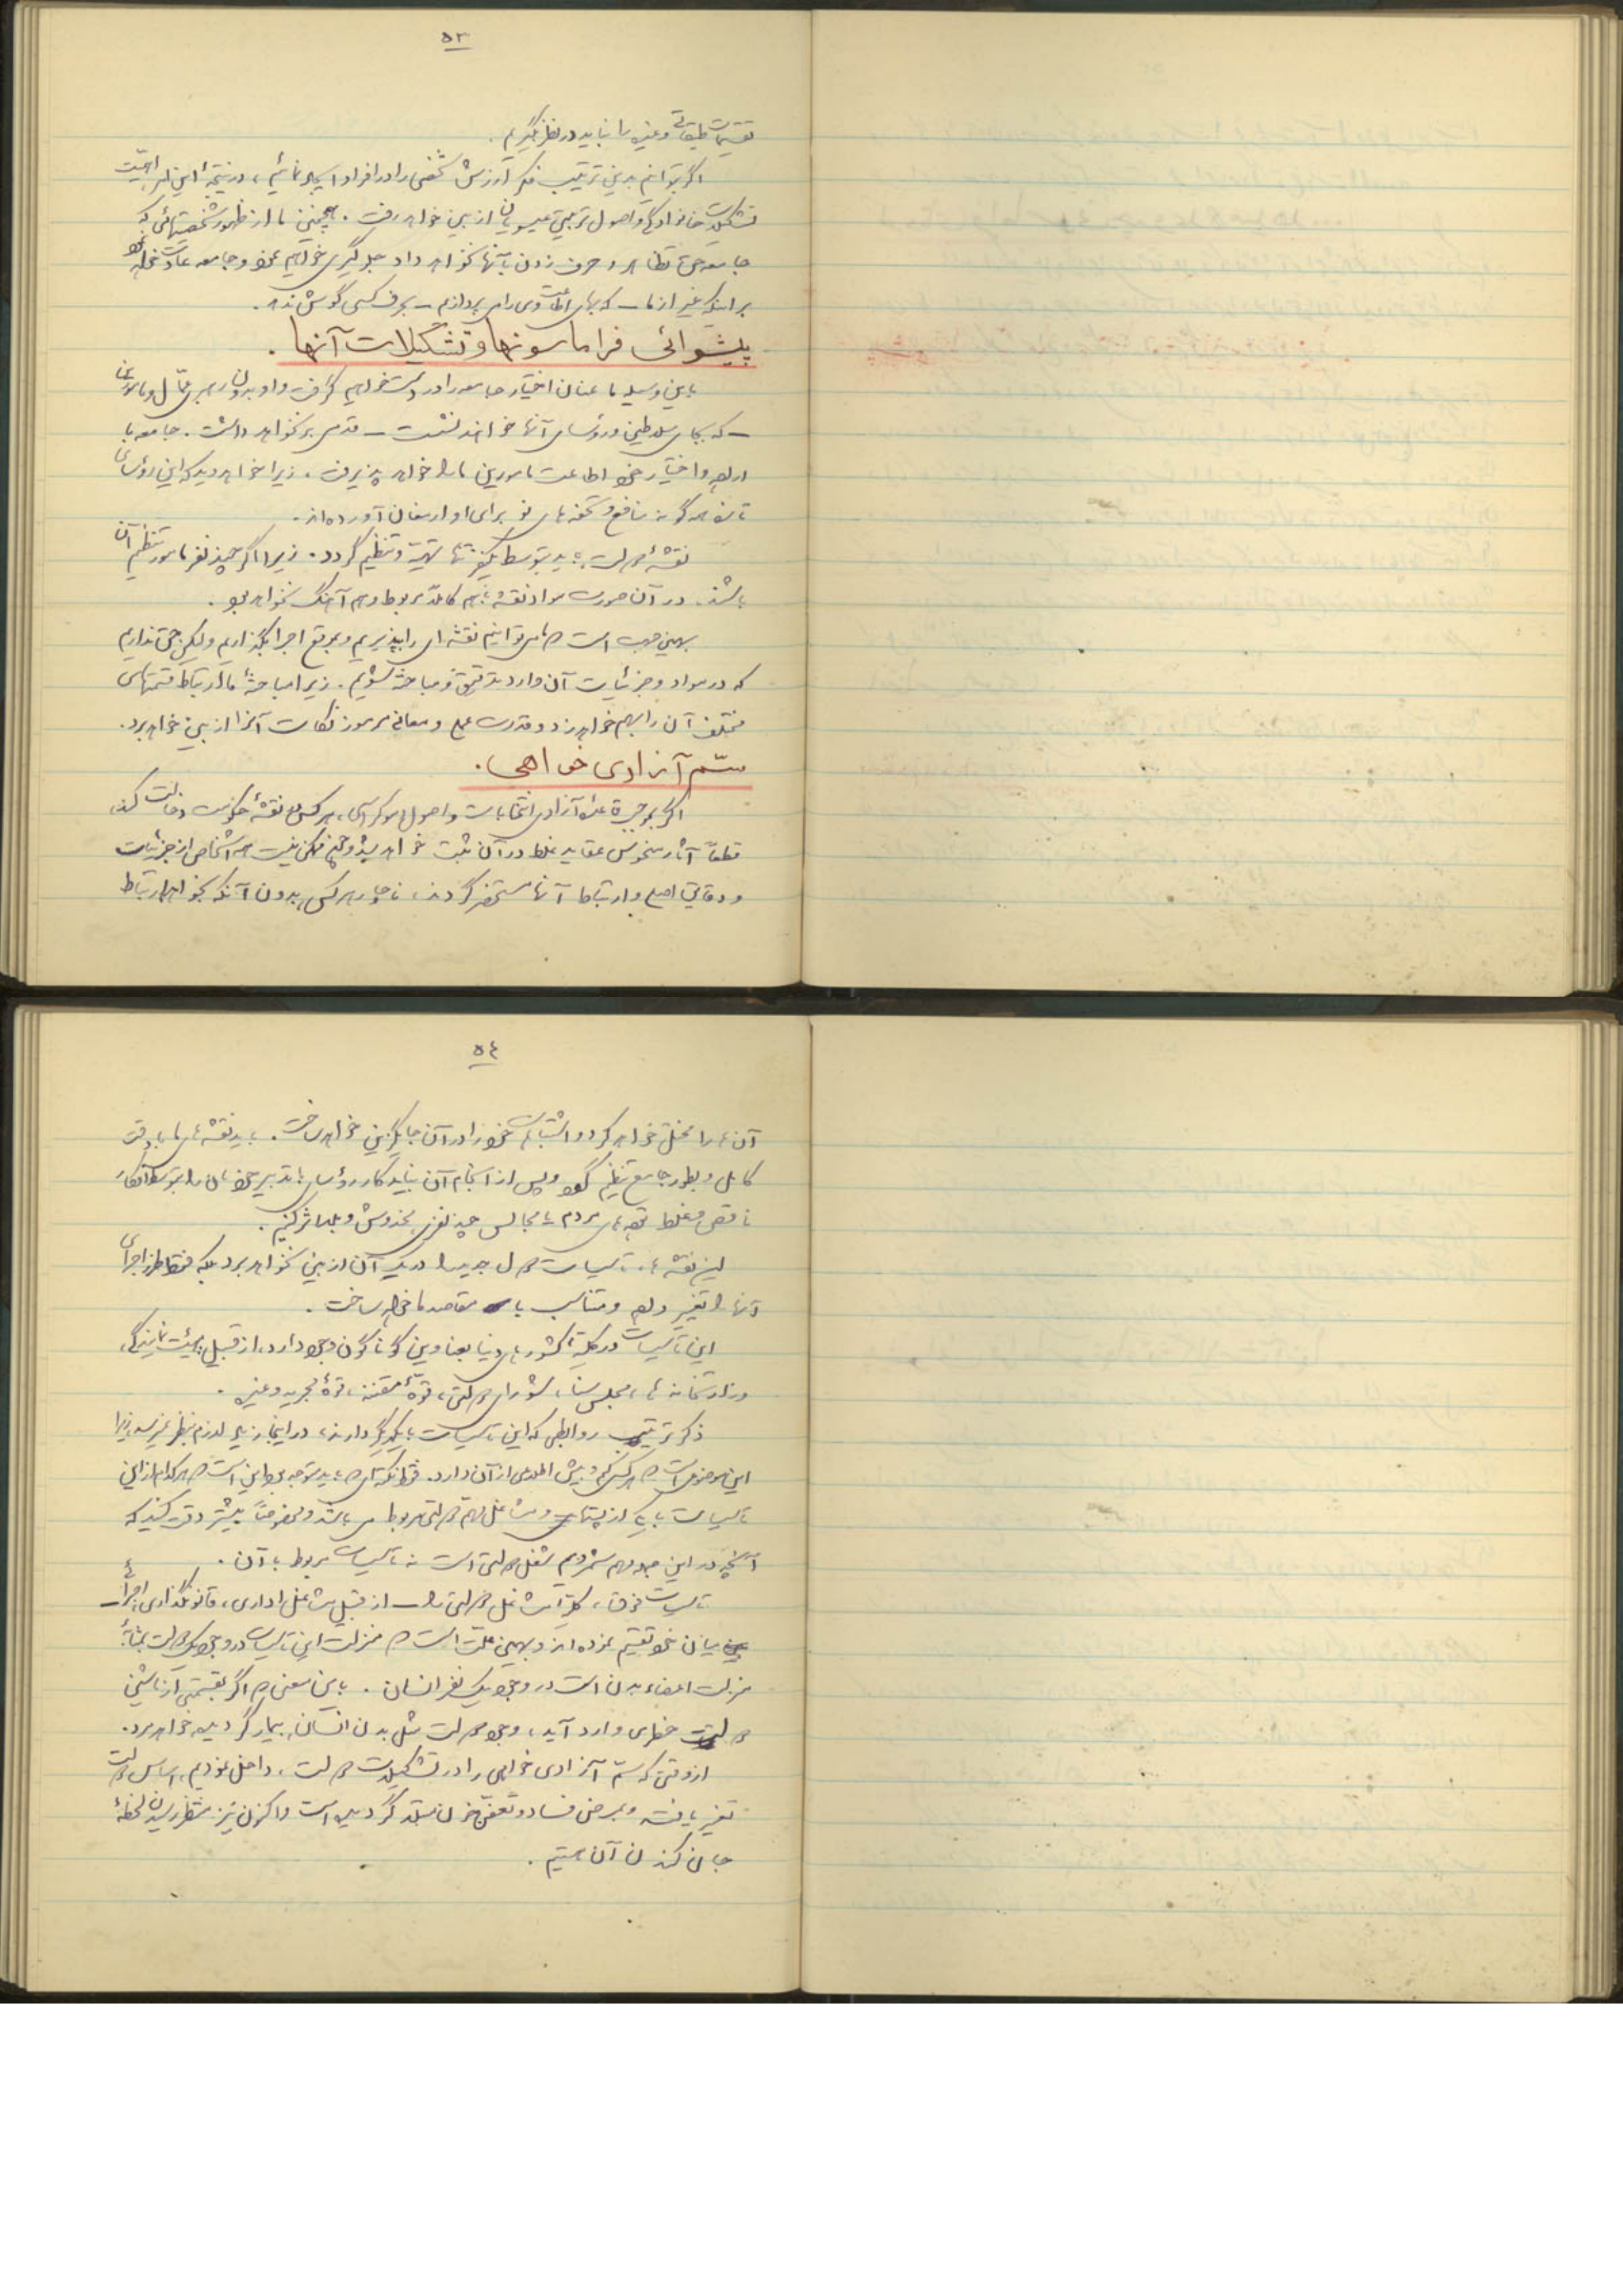 ٥٣
تقسیمات طبقاتی وغیره را نباید در نظر بگیریم .
اگر بتوانیم بدین ترتیب فکر ارزش شخصی را در افراد ایجاد نمائیم ، در نتیجهٔ این امر اهمیّت
تشکیلات خانوادگی و اصول تربیتی عیسویان از بین خواهد رفت . همچنین ما از ظهور شخصیتهائی که
جامعه حق تظاهر و حرف زدن بآنها نخواهد داد جلوگیری خواهیم نمود و جامعه عادت خواهد نمود
بر اینکه غیر از ما – که بهای اطاعت وی را می پردازیم – بحرف کسی گوش ندهد .
پیشوائی فراماسونها و تشکیلات آنها .
باین وسیله ما عنان اختیار جامعه را در دست خواهیم گرفت و او بدون رهبری عمّال و مامورین ما
– که بجای سلاطین و رؤسای آنها خواهند نشست – قدمی بر نخواهد داشت . جامعه با
اراده و اختیار خود اطاعت مامورین ما را خواهد پذیرفت ، زیرا خواهد دید که این رؤسای
تازه همه گونه منافع و تحفه های نو برای او ارمغان آورده اند .
نقشهٔ دولت باید بتوسط یکنفر تنها تهیّه و تنظیم گردد . زیرا اگر چند نفر مامور تنظیم آن
باشند ، در آن صورت مواد نقشه باهم کاملاً مربوط و هم آهنگ نخواهد بود .
بهمین جهت است که ما می توانیم نقشه ای را بپذیریم و بموقع اجرا بگذاریم ولکن حق نداریم
که در مواد و جزئیات آن وارد تدقیق و مباحثه بشویم . زیرا مباحثهٔ ما ارتباط قسمتهای
مختلف آن را بهم خواهد زد و قدرت عمل و معانی مرموز نکات آنرا از بین خواهد برد .
سمّ آزادی خواهی .
اگر بموجب قاعدهٔ آزادی انتخابات و اصول دموکراسی ، هر کس در نقشهٔ حکومت دخالت کند ،
قطعاً آثار منحوس عقاید غلط در آن ثبت خواهد شد و هیچ ممکن نیست که اشخاص از جزئیات
و دقایق اصلی و ارتباط آنها مستحضر گردند ، ناچار هر کس بدون آنکه بخواهد ارتباط
٥٤
آن ها را مختل خواهد کرد و اشتباهات خود را در آن جایگزین خواهد ساخت . باید نقشه های ما با دقت
کامل و بطور جامع تنظیم گردد و پس از انجام آن نباید کار رؤسای با تدبیر خودمان را بتوسط افکار
ناقص و غلط توده های مردم یا مجالس چند نفری مخدوش و بلا اثر کنیم .
این نقشه ها ، تاسیسات دول جدید را در یک آن از بین نخواهد برد بلکه فقط طرز اجرای
آنها را تغییر داده و متناسب با مقاصد ما خواهد ساخت .
این تاسیسات در کلیّهٔ کشورهای دنیا بعناوین گوناگون وجود دارد ، از قبیل هیئت نمایندگی ،
وزارتخانه ها ، مجلس سنا ، شورای دولتی ، قوّهٔ مقننه ، قوهٔ مجریه و غیره .
ذکر ترتیب روابطی که این تاسیسات با یکدیگر دارند ، در اینجا زیاد لازم بنظر نمیرسد ، زیرا
این موضوعی است که هر کس کم و بیش اطلاعی از آن دارد . فقط نکته ای که باید متوجه بود این است که هر کدام از این
تاسیسات با یکی از پستهای و مشاغل مهم دولتی مربوط می باشند و خصوصاً بیشتر دقت کنید که
آنچه در این جا مهم شمردیم شغل دولتی است نه تاسیسات مربوط با آن .
تاسیسات فوق ، کلیّهٔ مشاغل دولتی را – از قبیل مشاغل اداری ، قانونگذاری ، اجرائی –
بین میان خود تقسیم نموده اند و بهمین علّت است که منزلت این تاسیسات در وجود یک دولت بمثابهٔ
منزلت اعضاء بدن است در وجود یک نفر انسان . باین معنی که اگر بقسمتی از ماشین
دولت خطری وارد آید ، وجود دولت مثل بدن انسان ، بیمار گردیده خواهد مرد .
از وقتی که سمّ آزادی خواهی را در تشکیلات دولت ، داخل نمودیم ، اساس دولت
تغییر یافته و بمرض فساد و تعفن خون مبتلا گردیده است و اکنون نیز منتظر رسیدن لحظهٔ
جان کندن آن هستیم .